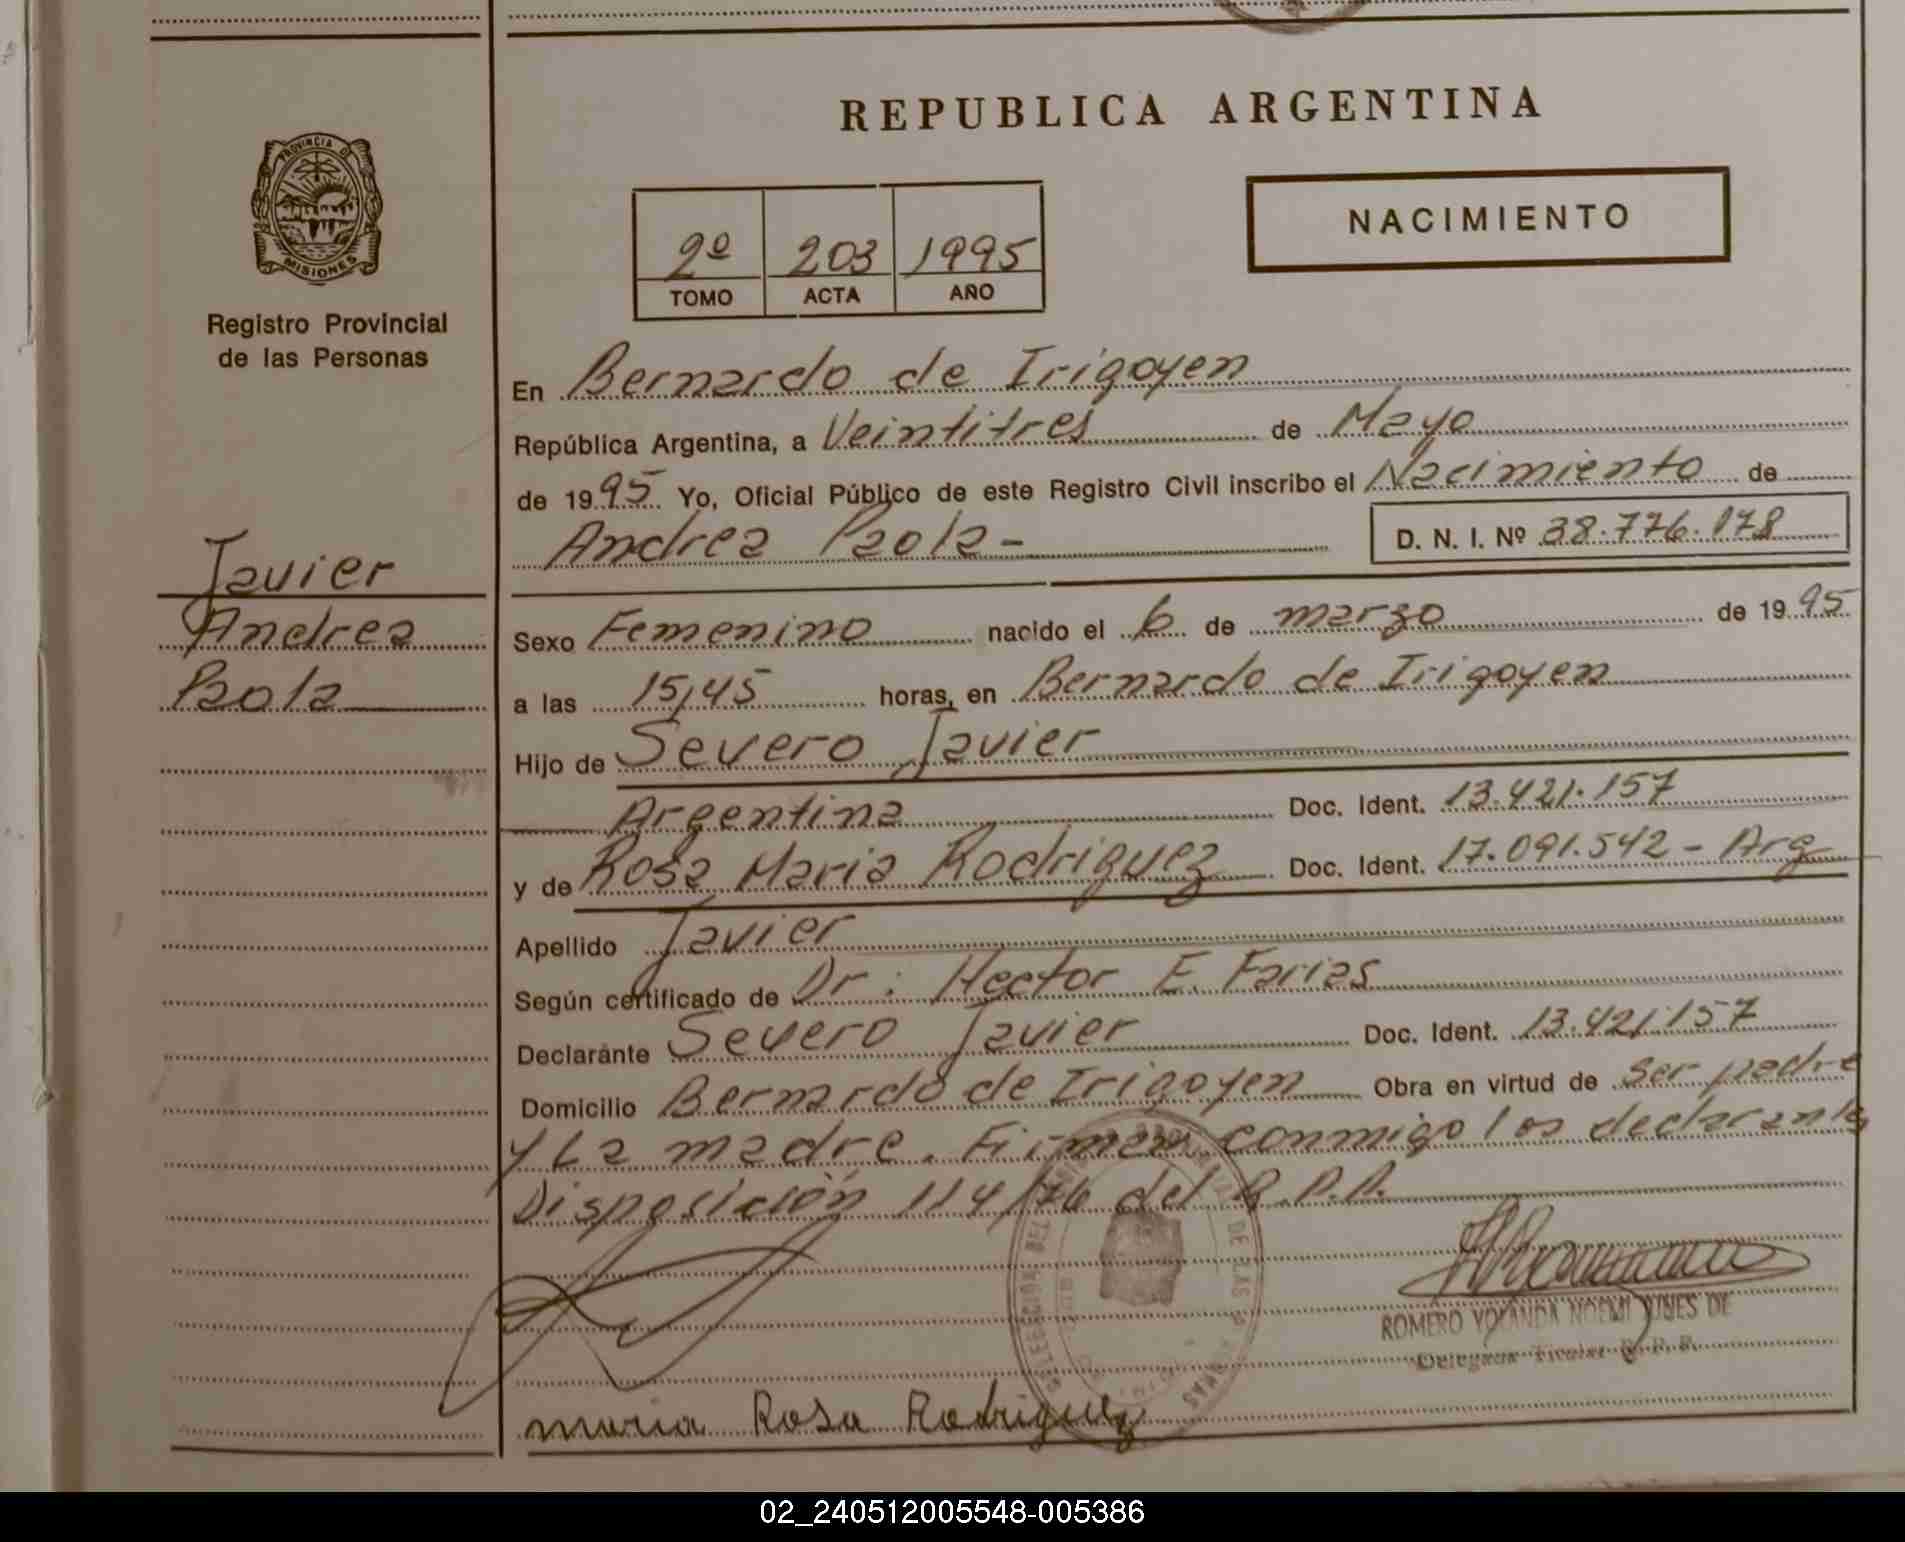 REPUBLICA ARGENTINA
PROVINCIA DE
MISIONES
Registro Provincial
de las Personas
NACIMIENTO
2º 203 1995
TOMO ACTA AÑO
En Bernardo de Irigoyen
República Argentina, a Veintitres de Mayo
de 1995 Yo, Oficial Público de este Registro Civil inscribo el Nacimiento de
Andrea Paola- D. N. I. Nº 38.776.178
Javier
Andrea
Paola
Sexo Femenino nacido el 6 de marzo de 1995
a las 15,45 horas, en Bernardo de Irigoyen
Hijo de Severo Javier
Argentina Doc. Ident. 13.421.157
y de Rosa Maria Rodriguez Doc. Ident. 17.091.542 - Arg
Apellido Javier
Según certificado de Dr: Hector E. Farias
Declarante Severo Javier Doc. Ident. 13.421.157
Domicilio Bernardo de Irigoyen Obra en virtud de ser padre
y La madre. Firman conmigo los declarantes
Disposición 114/76 del R.P.P.
ROMERO YOLANDA NOEMI DE
Delegada Titular R. P. P.
maria Rosa Rodriguez
02_240512005548-005386